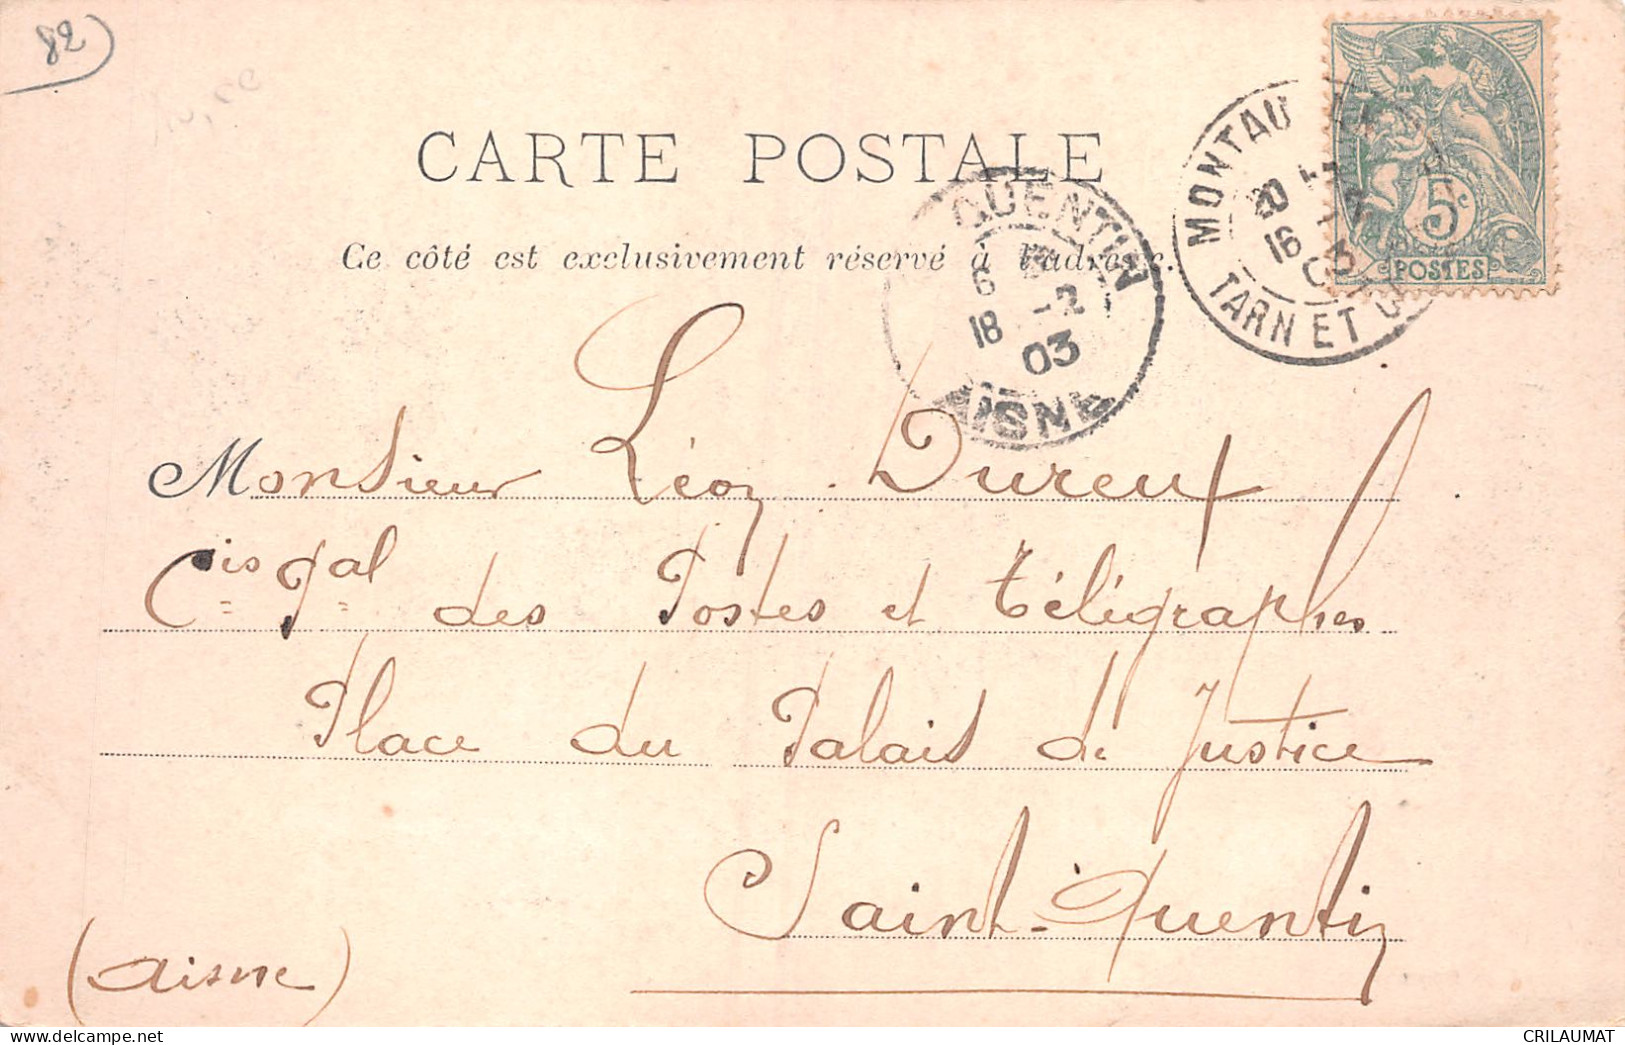 82
CARTE POSTALE
Ce côté est exclusivement réservé à l'adresse.
MONTAU
20
16
TARN ET G
5c
POSTES
QUENTIN
6
18 -2
03
AISNE
Monsieur Léon Dureux
Cis Pal des Postes et Télégraphes
Place du Palais de Justice
Saint-Quentin
(Aisne)
CRILAUMAT